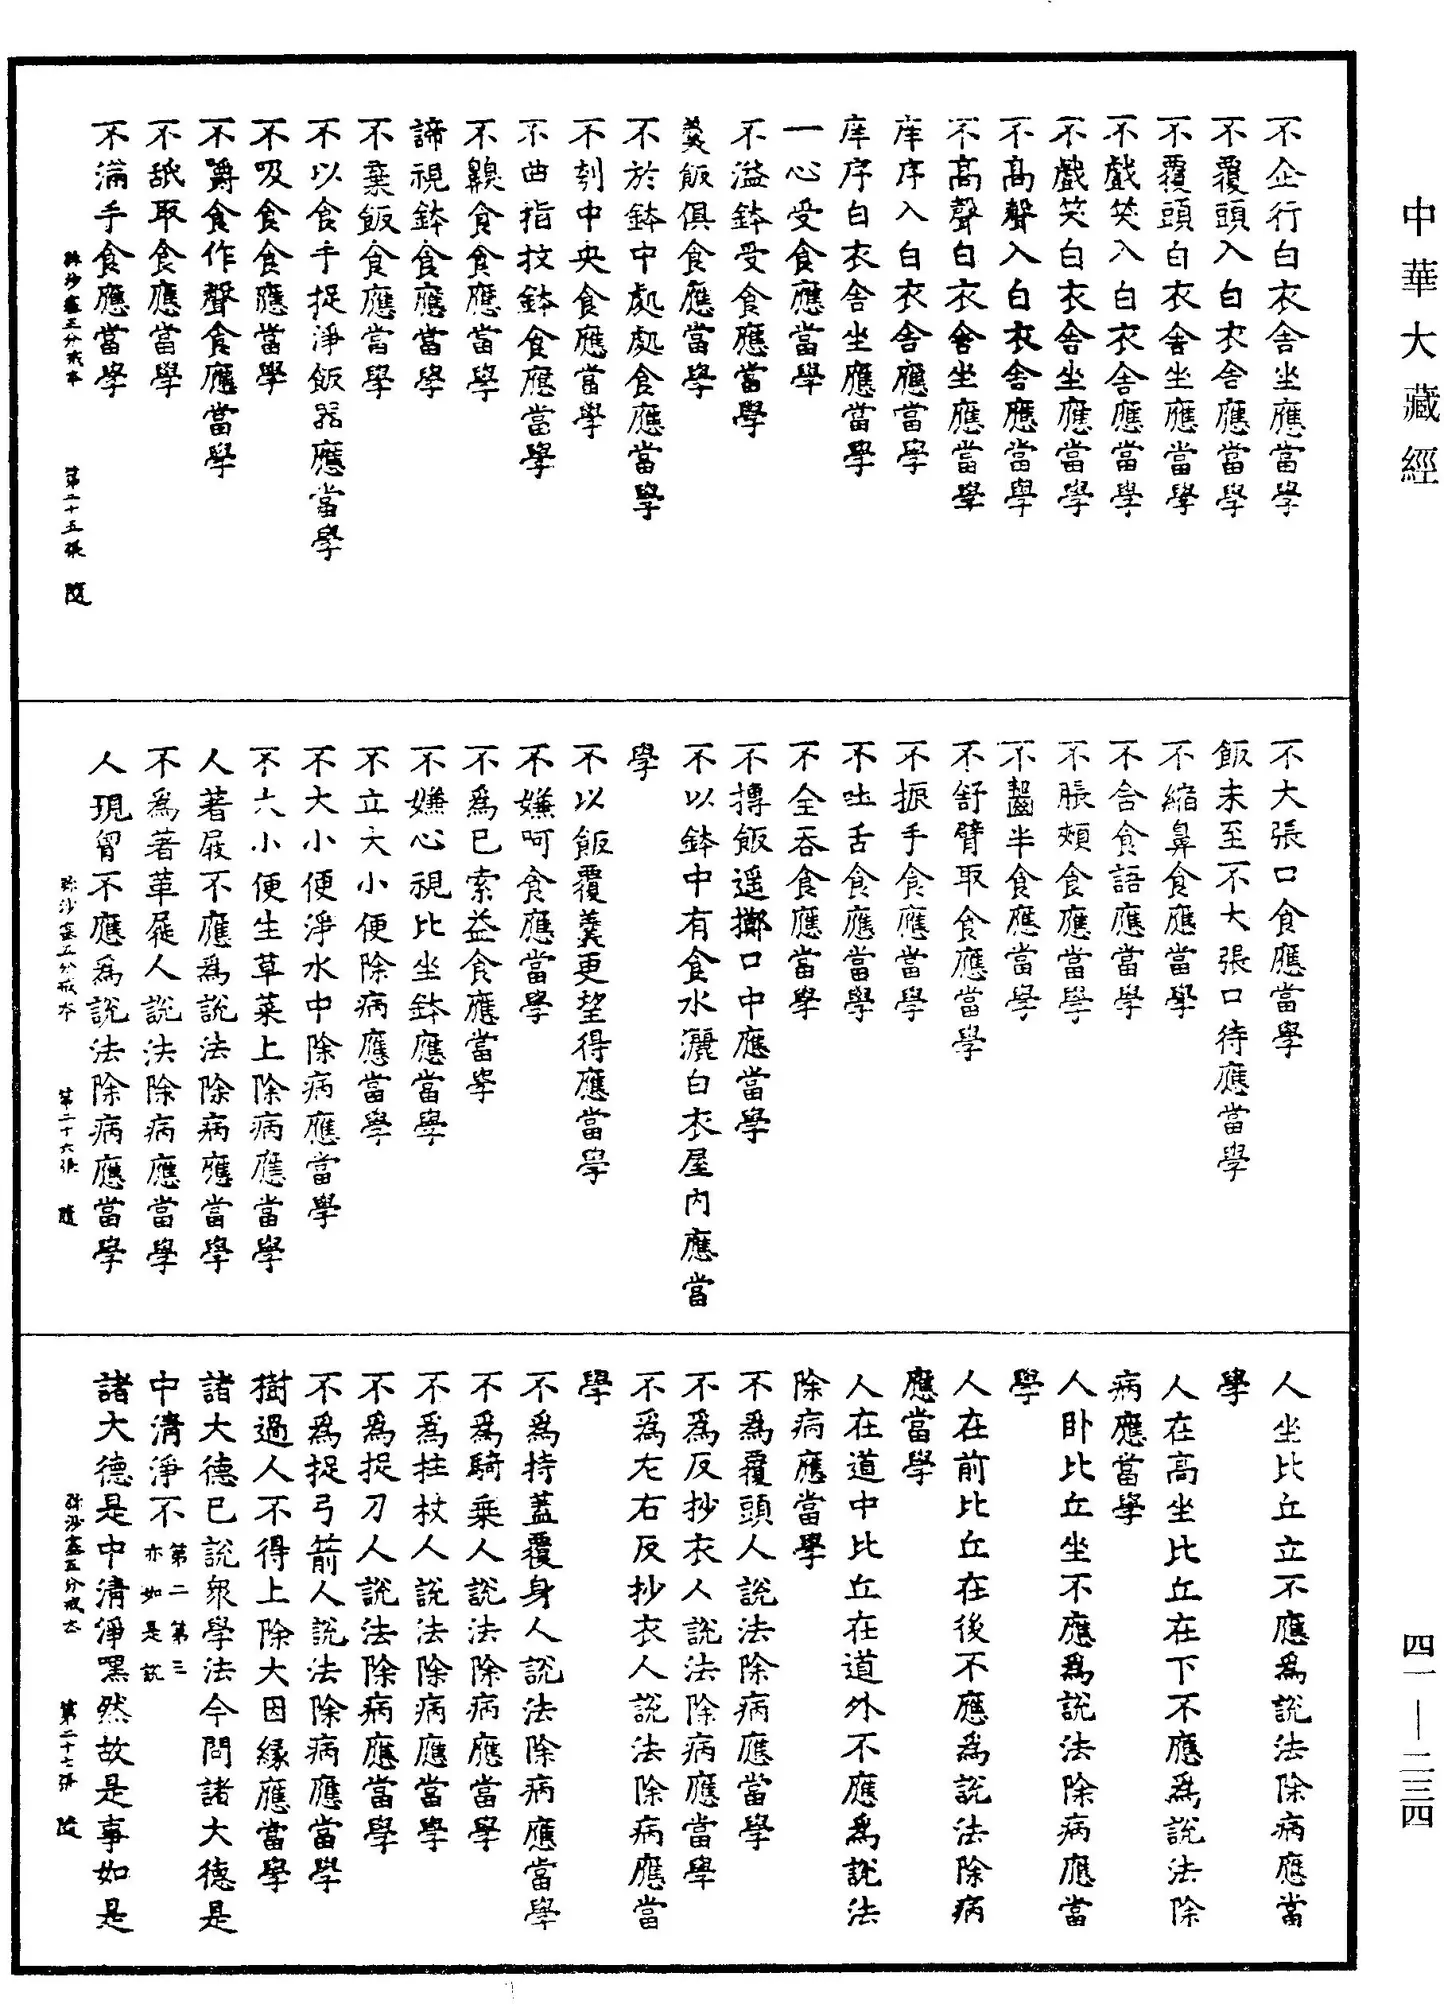 中華大藏經
不企行白衣舍坐應當學
不覆頭入白衣舍應當學
不覆頭白衣舍坐應當學
不戲笑入白衣舍應當學
不戲笑白衣舍坐應當學
不高聲入白衣舍應當學
不高聲白衣舍坐應當學
庠序入白衣舍應當學
庠序白衣舍坐應當學
一心受食應當學
不溢鉢受食應當學
羹飯俱食應當學
不於鉢中處處食應當學
不刳中央食應當學
不曲指抆鉢食應當學
不齅食食應當學
諦視鉢食應當學
不棄飯食應當學
不以食手捉淨飯器應當學
不吸食食應當學
不嚼食作聲食應當學
不舐取食應當學
不滿手食應當學
弥沙塞五分戒本 第二十五張 隨
不大張口食應當學
飯未至不大張口待應當學
不縮鼻食應當學
不含食語應當學
不脹頰食應當學
不齧半食應當學
不舒臂取食應當學
不振手食應當學
不吐舌食應當學
不全吞食應當學
不摶飯遥擲口中應當學
不以鉢中有食水灑白衣屋內應當
學
不以飯覆羹更望得應當學
不嫌呵食應當學
不為已索益食應當學
不嫌心視比坐鉢應當學
不立大小便除病應當學
不大小便淨水中除病應當學
不大小便生草菜上除病應當學
人著屐不應為說法除病應當學
不為著革屣人說法除病應當學
人現胷不應為說法除病應當學
弥沙塞五分戒本 第二十六張 隨
人坐比丘立不應為說法除病應當
學
人在高坐比丘在下不應為說法除
病應當學
人卧比丘坐不應為說法除病應當
學
人在前比丘在後不應為說法除病
應當學
人在道中比丘在道外不應為說法
除病應當學
不為覆頭人說法除病應當學
不為反抄衣人說法除病應當學
不為左右反抄衣人說法除病應當
學
不為持蓋覆身人說法除病應當學
不為騎乘人說法除病應當學
不為拄杖人說法除病應當學
不為捉刀人說法除病應當學
不為捉弓箭人說法除病應當學
樹過人不得上除大因緣應當學
諸大德已說眾學法今問諸大德是
中清淨不第二第三亦如是說
諸大德是中清淨嘿然故是事如是
弥沙塞五分戒本 第二十七張 隨
四一—二三四